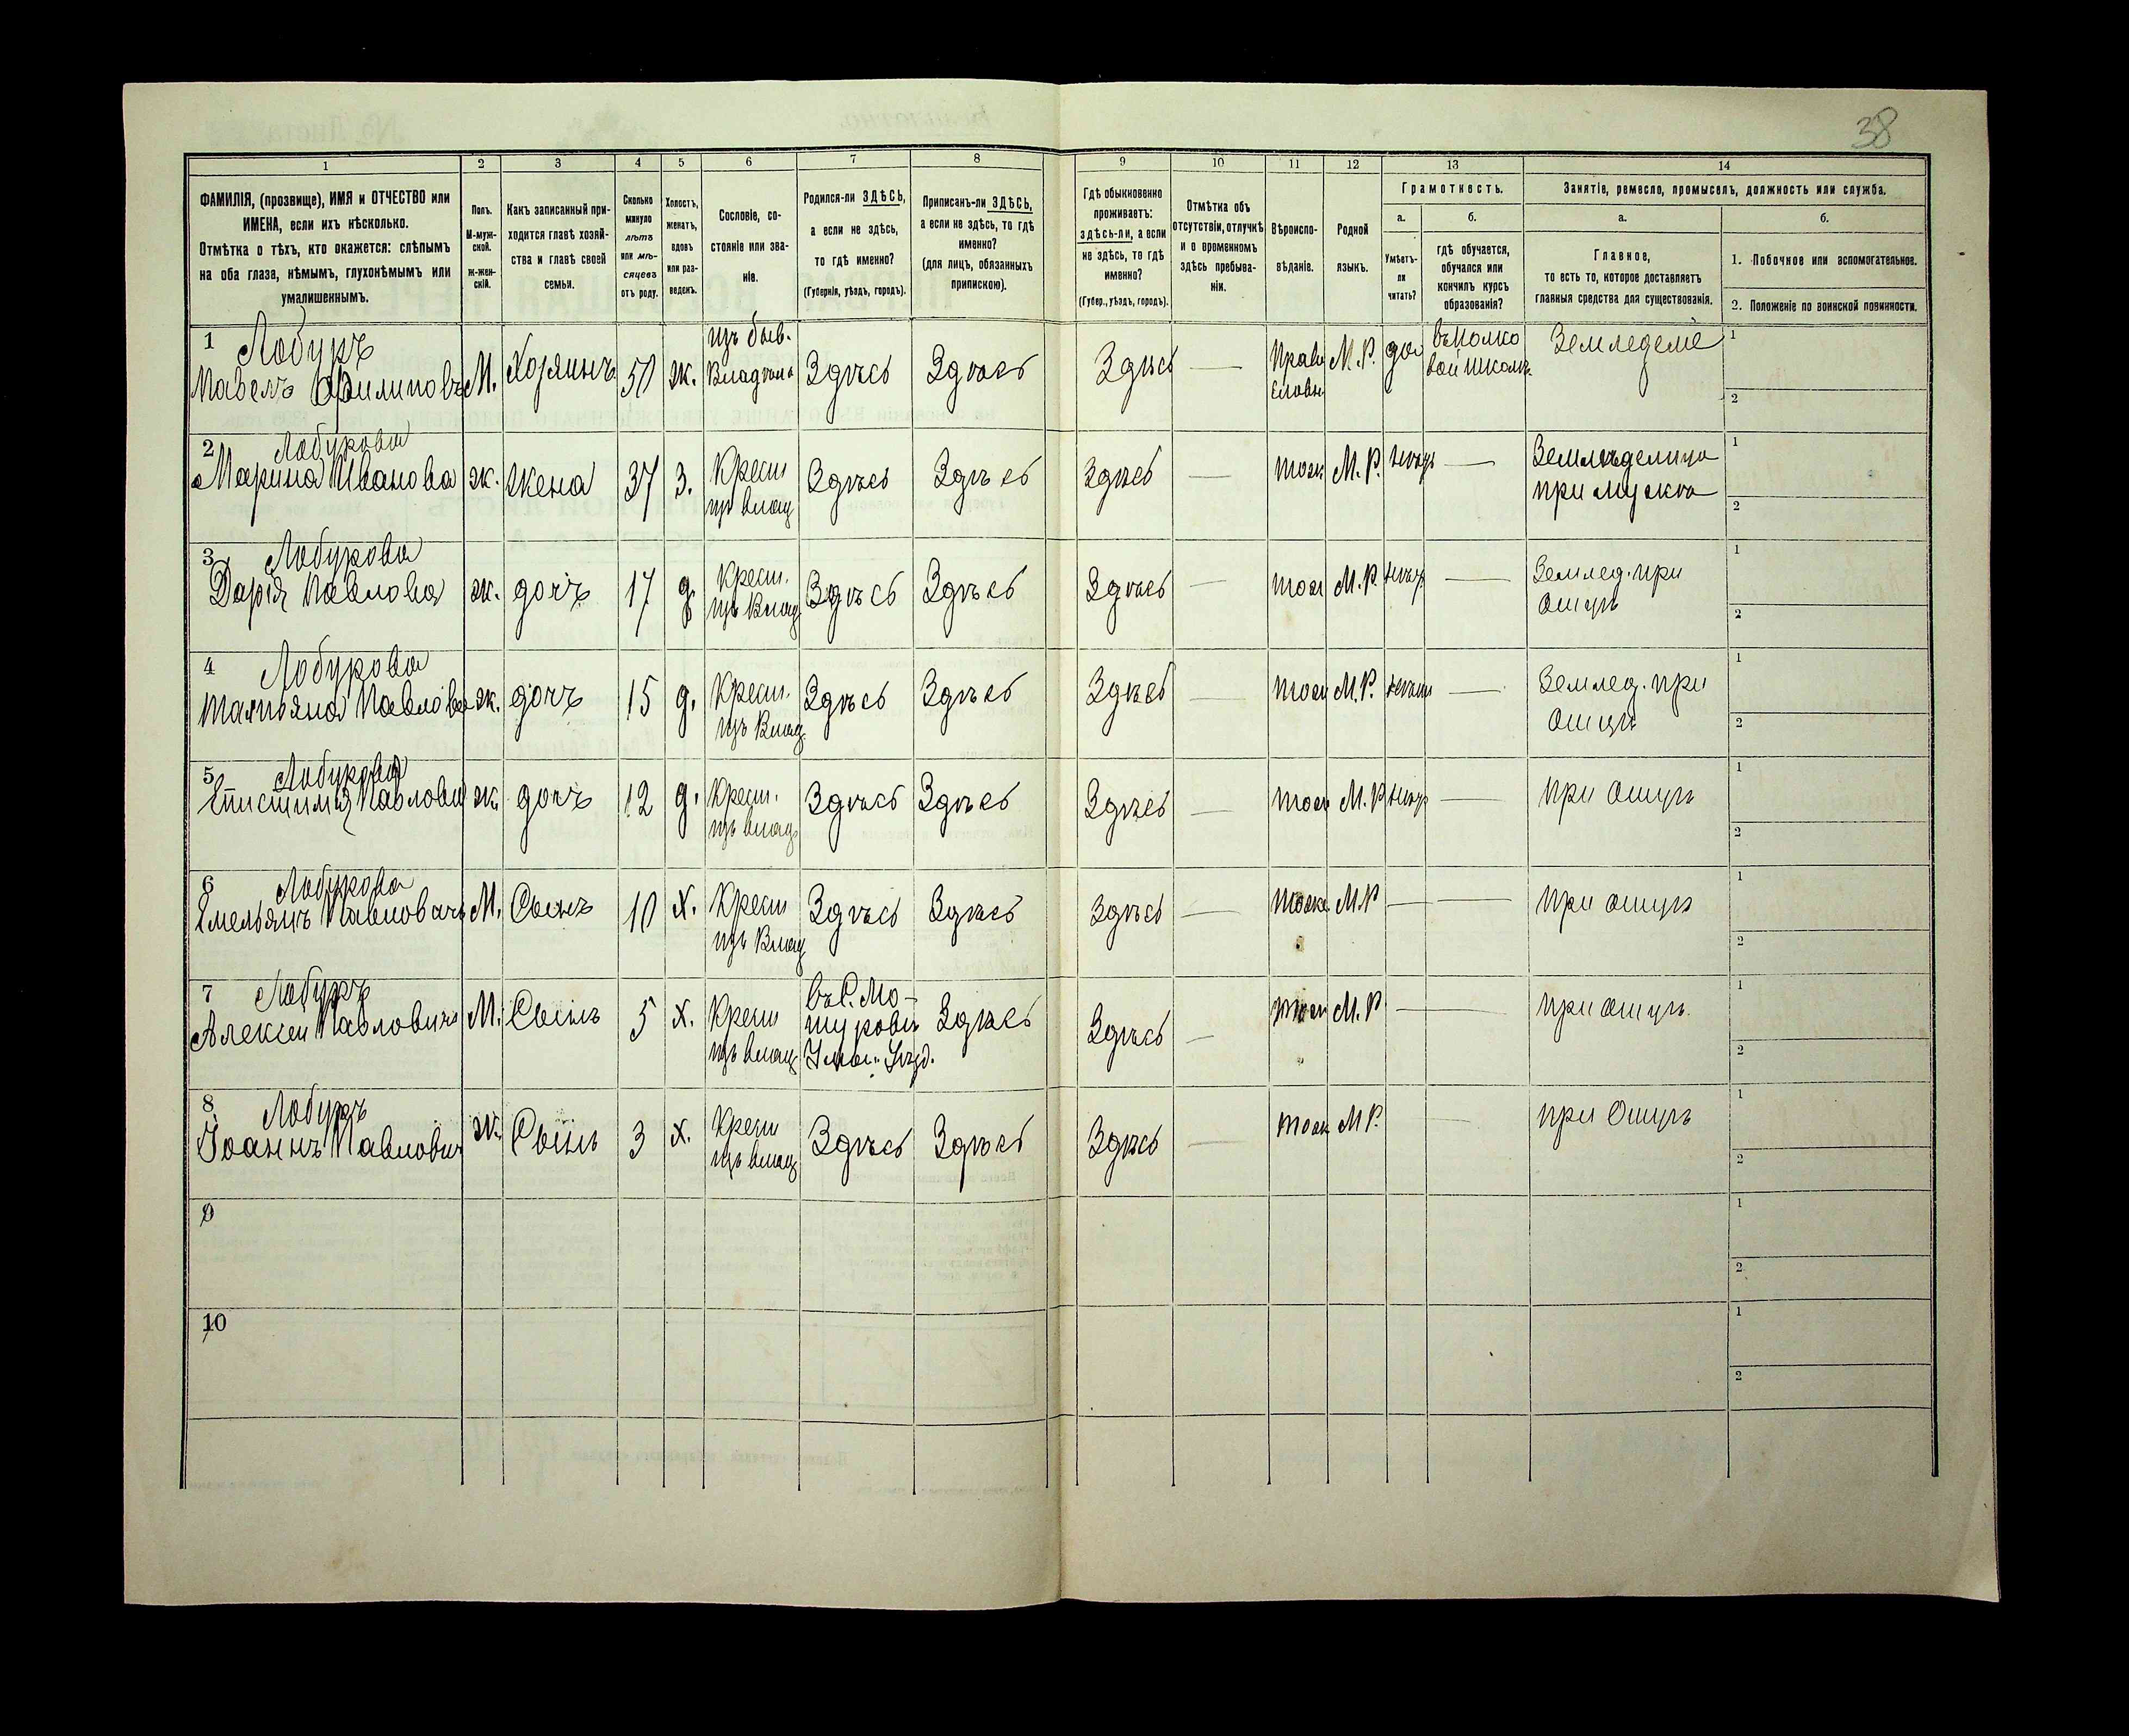 38
1 2 3 4 5 6 7 8 9 10 11 12 13 14
ФАМИЛІЯ, (прозвище), ИМЯ и ОТЧЕСТВО или
ИМЕНА, если ихъ нѣсколько.
Отмѣтка о тѣхъ, кто окажется: слѣпымъ
на оба глаза, нѣмымъ, глухонѣмымъ или
умалишеннымъ.
Полъ.
М-муж-
ской.
Ж-жен-
скій.
Какъ записанный при-
ходится главѣ хозяй-
ства и главѣ своей
семьи.
Сколько
минуло
лѣтъ
или мѣ-
сяцевъ
отъ роду.
Холостъ,
женатъ,
вдовъ
или раз-
веденъ.
Сословіе, со-
стояніе или зва-
ніе.
Родился-ли ЗДѢСЬ,
а если не здѣсь,
то гдѣ именно?
(Губернія, уѣздъ, городъ).
Приписанъ-ли ЗДѢСЬ,
а если не здѣсь, то гдѣ
именно?
(для лицъ, обязанныхъ
припискою).
Гдѣ обыкновенно
проживаетъ:
здѣсь-ли, а если
не здѣсь, то гдѣ
именно?
(Губер., уѣздъ, городъ).
Отмѣтка объ
отсутствіи, отлучкѣ
и о временномъ
здѣсь пребыва-
ніи.
Вѣроиспо-
вѣданіе.
Родной
языкъ.
Грамотность.
а.
Умѣетъ-
ли
читать?
б.
гдѣ обучается,
обучался или
кончилъ курсъ
образованія?
Занятіе, ремесло, промыселъ, должность или служба.
а.
Главное,
то есть то, которое доставляетъ
главныя средства для существованія.
б.
1. Побочное или вспомогательное.
2. Положеніе по воинской повинности.
1 Лобуръ
Павелъ Филиповъ М. Хозяинъ 50 ж.
изъ быв.
Здѣсь Здѣсь Здѣсь — Прав М. Р. да Земледеліе 1
2
2 Лобурова
Марина Иванова ж. жена 37 з. Крест
изъ влад
Здѣсь Здѣсь Здѣсь — тоже М. Р. —
при мужѣ
1
2
3 Лобурова
Дарія Павлова ж. дочь 17 д. Крест.
изъ Влад
Здѣсь Здѣсь Здѣсь — тоже М. Р. — Землед. при
отцѣ
1
2
4 Лобурова
Татьяна Павлова ж. дочь 15 д. Крест.
изъ Влад.
Здѣсь Здѣсь Здѣсь — тоже М. Р. — Землед. при
отцѣ
1
2
5 Лобурова
Епистимія Павлова ж. дочь 12 д. Крест.
изъ влад.
Здѣсь Здѣсь Здѣсь — тоже М. Р. — при отцѣ
1
2
6 Лобурова
Емельянъ Павловичъ М. Сынъ 10 х. Крест
изъ Влад
Здѣсь Здѣсь Здѣсь — тоже М. Р — — при отцѣ
1
2
7 Лобуръ
Алексей Павловичъ М. Сынъ 5 х. Крест
изъ влад
Здѣсь Здѣсь — тоже М. Р — при отцѣ.
1
2
8 Лобуръ
Іоаннъ Павловичъ Сынъ 3 х. Крест
изъ влад
Здѣсь Здѣсь Здѣсь — тоже М Р. — при Отцѣ
1
2
9
1
2
10
1
2